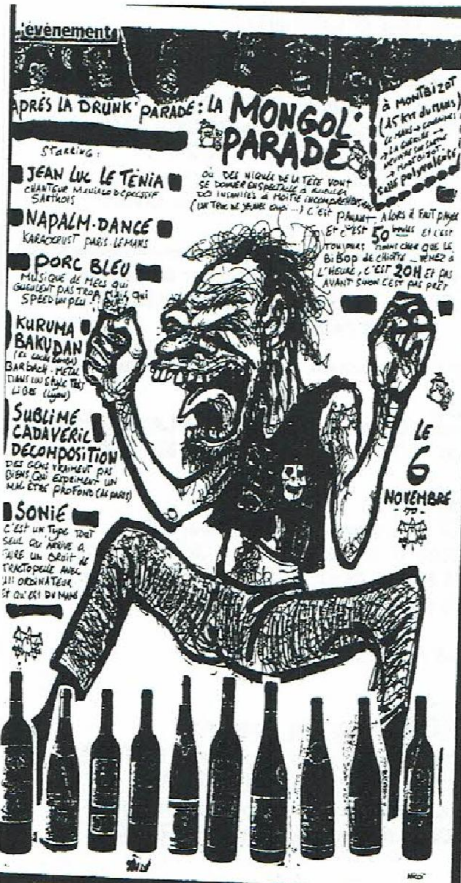 l'évènement
APRÉS LA DRUNK' PARADE : LA MONGOL'
PARADE
à MONTBIZOT
(15 KM du MANS)
STARRING :
JEAN LUC LE TÉNIA
CHANTEUR MANIACO DÉPRESSIF
SARTHOIS
NAPALM-DANCE
PARIS-LE MANS
PORC BLEU
MUSIQUE DE MECS QUI
GUEULENT PAS TROP MAIS QUI
SPEED UN PEU
KURUMA
BAKUDAN
METAL
DANS UN STYLE TRÈS
LIBRE (LYON)
SUBLIME
CADAVERIC
DECOMPOSITION
DES GENS VRAIMENT PAS
BIENS QUI EXPRIMENT UN
MAL ÊTRE PROFOND (LAS PARIS)
SONIE
C'EST UN TYPE TOUT
SEUL QU ARRIVE À
FAIRE UN BRUIT DE
TRACTOPELLE AVEC
UN ORDINATEUR
ET QU'EST DU MANS
OÙ DES NIQUÉS DE LA TÊTE VONT
SE DONNER EN SPECTACLE À
À MOITIÉ
C'EST PAYANT ALORS À FAUT PAYER
ET C'EST 50 boules ET C'EST
TOUJOURS MOINS CHER QUE LE
BIBOP DE CHIOTTE VENEZ À
L'HEURE, C'EST 20H ET PAS
AVANT SINON C'EST PAS PRÊT
LE
6
NOVEMBRE